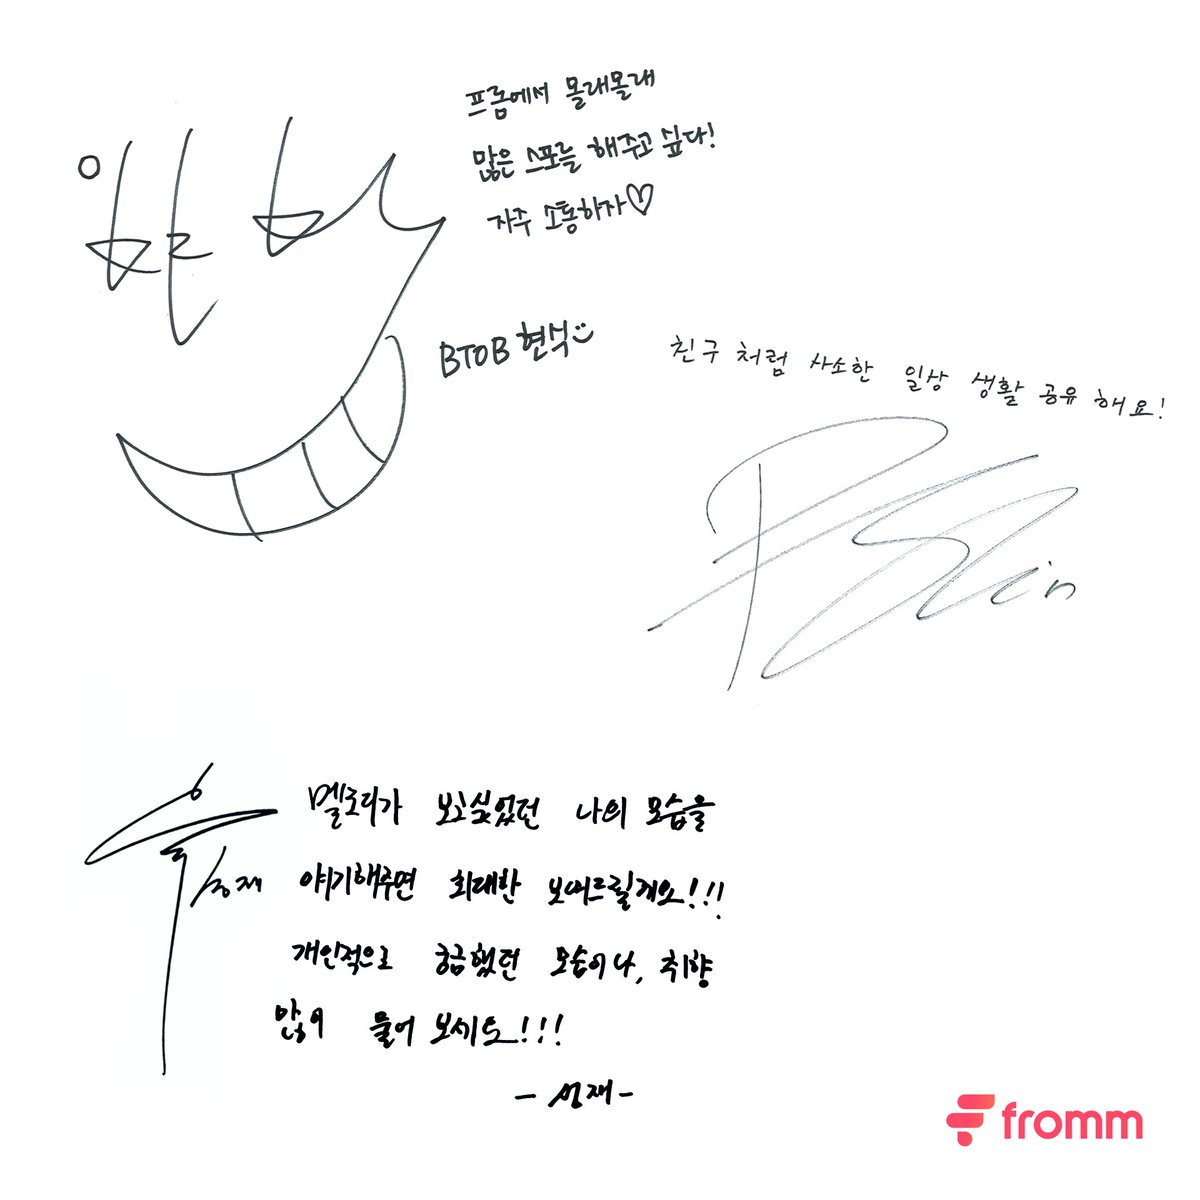 프롬에서 몰래몰래
많은 스포를 해주고 싶다!
자주 소통하자♡
BTOB 현식
친구 처럼 사소한 일상 생활 공유 해요!
P Shin
멜로디가 보고싶었던 나의 모습을
야기해주면 최대한 보여드릴게요!!!
개인적으로 궁금했던 모습이나, 취향
많이 물어 보세요!!!
성재
- 성재 -
fromm